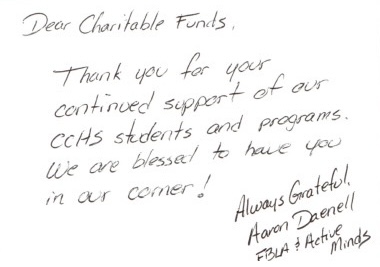 Dear Charitable Funds,
Thank you for your
continued support of our
CCHS students and programs.
We are blessed to have you
in our corner!
Always Grateful,
Aaron Daenell
FBLA & Active
Minds